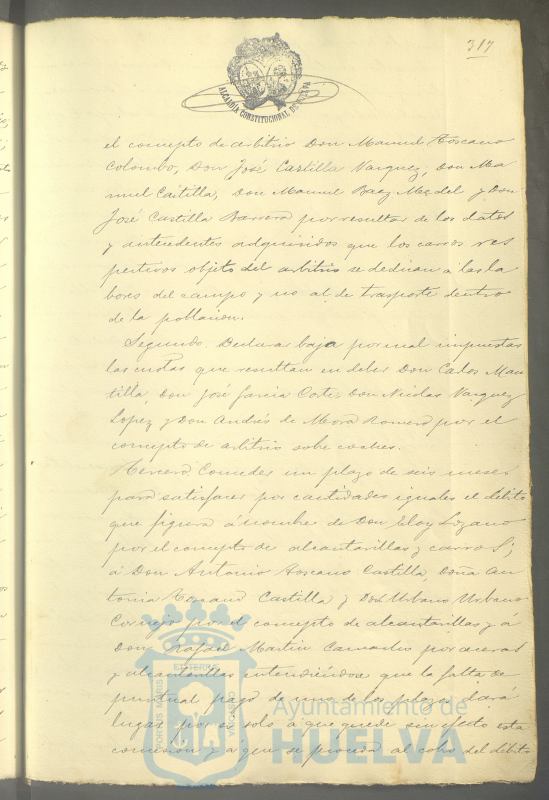 317
ALCALDIA CONSTITUCIONAL DE HUELVA
el concepto de arbitrio Don Manuel Toscano
Colombo, Don José Castilla Vazquez, Don Ma
nuel Castilla, Don Manuel Baez Medel y Don
José Castilla Barrera por resultar de los datos
y antecedentes adquiridos que los carros res
pectivos objeto del arbitrio se dedican a las la
bores del campo y no al de trasporte dentro
de la poblacion.
Segundo Declarar baja por mal impuestas
las cuotas que resultan en deber Don Carlos Man
tilla, Don José Garcia Don Nicolas Vazquez
Lopez y Don Andrés de Mora Romero por el
concepto de arbitrio sobre coches.
Tercero Conceder un plazo de seis meses
para satisfacer por cantidades iguales el débito
que figura á nombre de Don Eloy Lozano
por el concepto de alcantarillas y carros;
á Don Antonio Toscano Castilla, Doña An
tonia Castilla y Don Urbano Urbano
Cornejo por el concepto de alcantarillas y á
Don Rafael Martin por aceras
y alcantarillas entendiéndose que la falta de
puntual pago de uno de los plazos dará
lugar por si solo á que quede sin efecto esta
concesion y a que se proceda al cobro del débito
PORTUS MARIS ET TERRE CUSTODIA
Ayuntamiento de
HUELVA